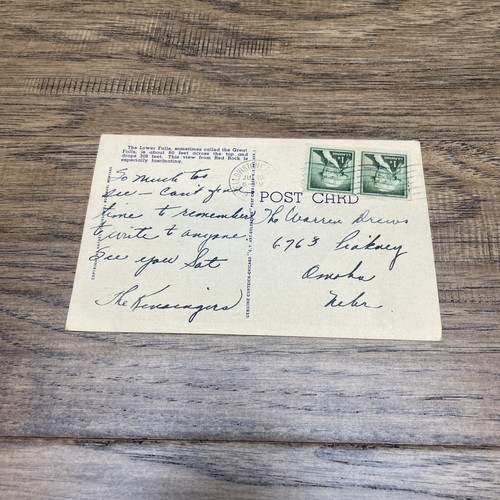 The Lower Falls, sometimes called the Great
Falls, is about 80 feet across the top and
drops 308 feet. This view from Red Rock is
especially fascinating.
To much too
see - Can't find
time to remember
to write to anyone
See you Sat
The Kensingers
POST CARD
The Warren Drews
6763 Pinkney
Omaha
Nebr